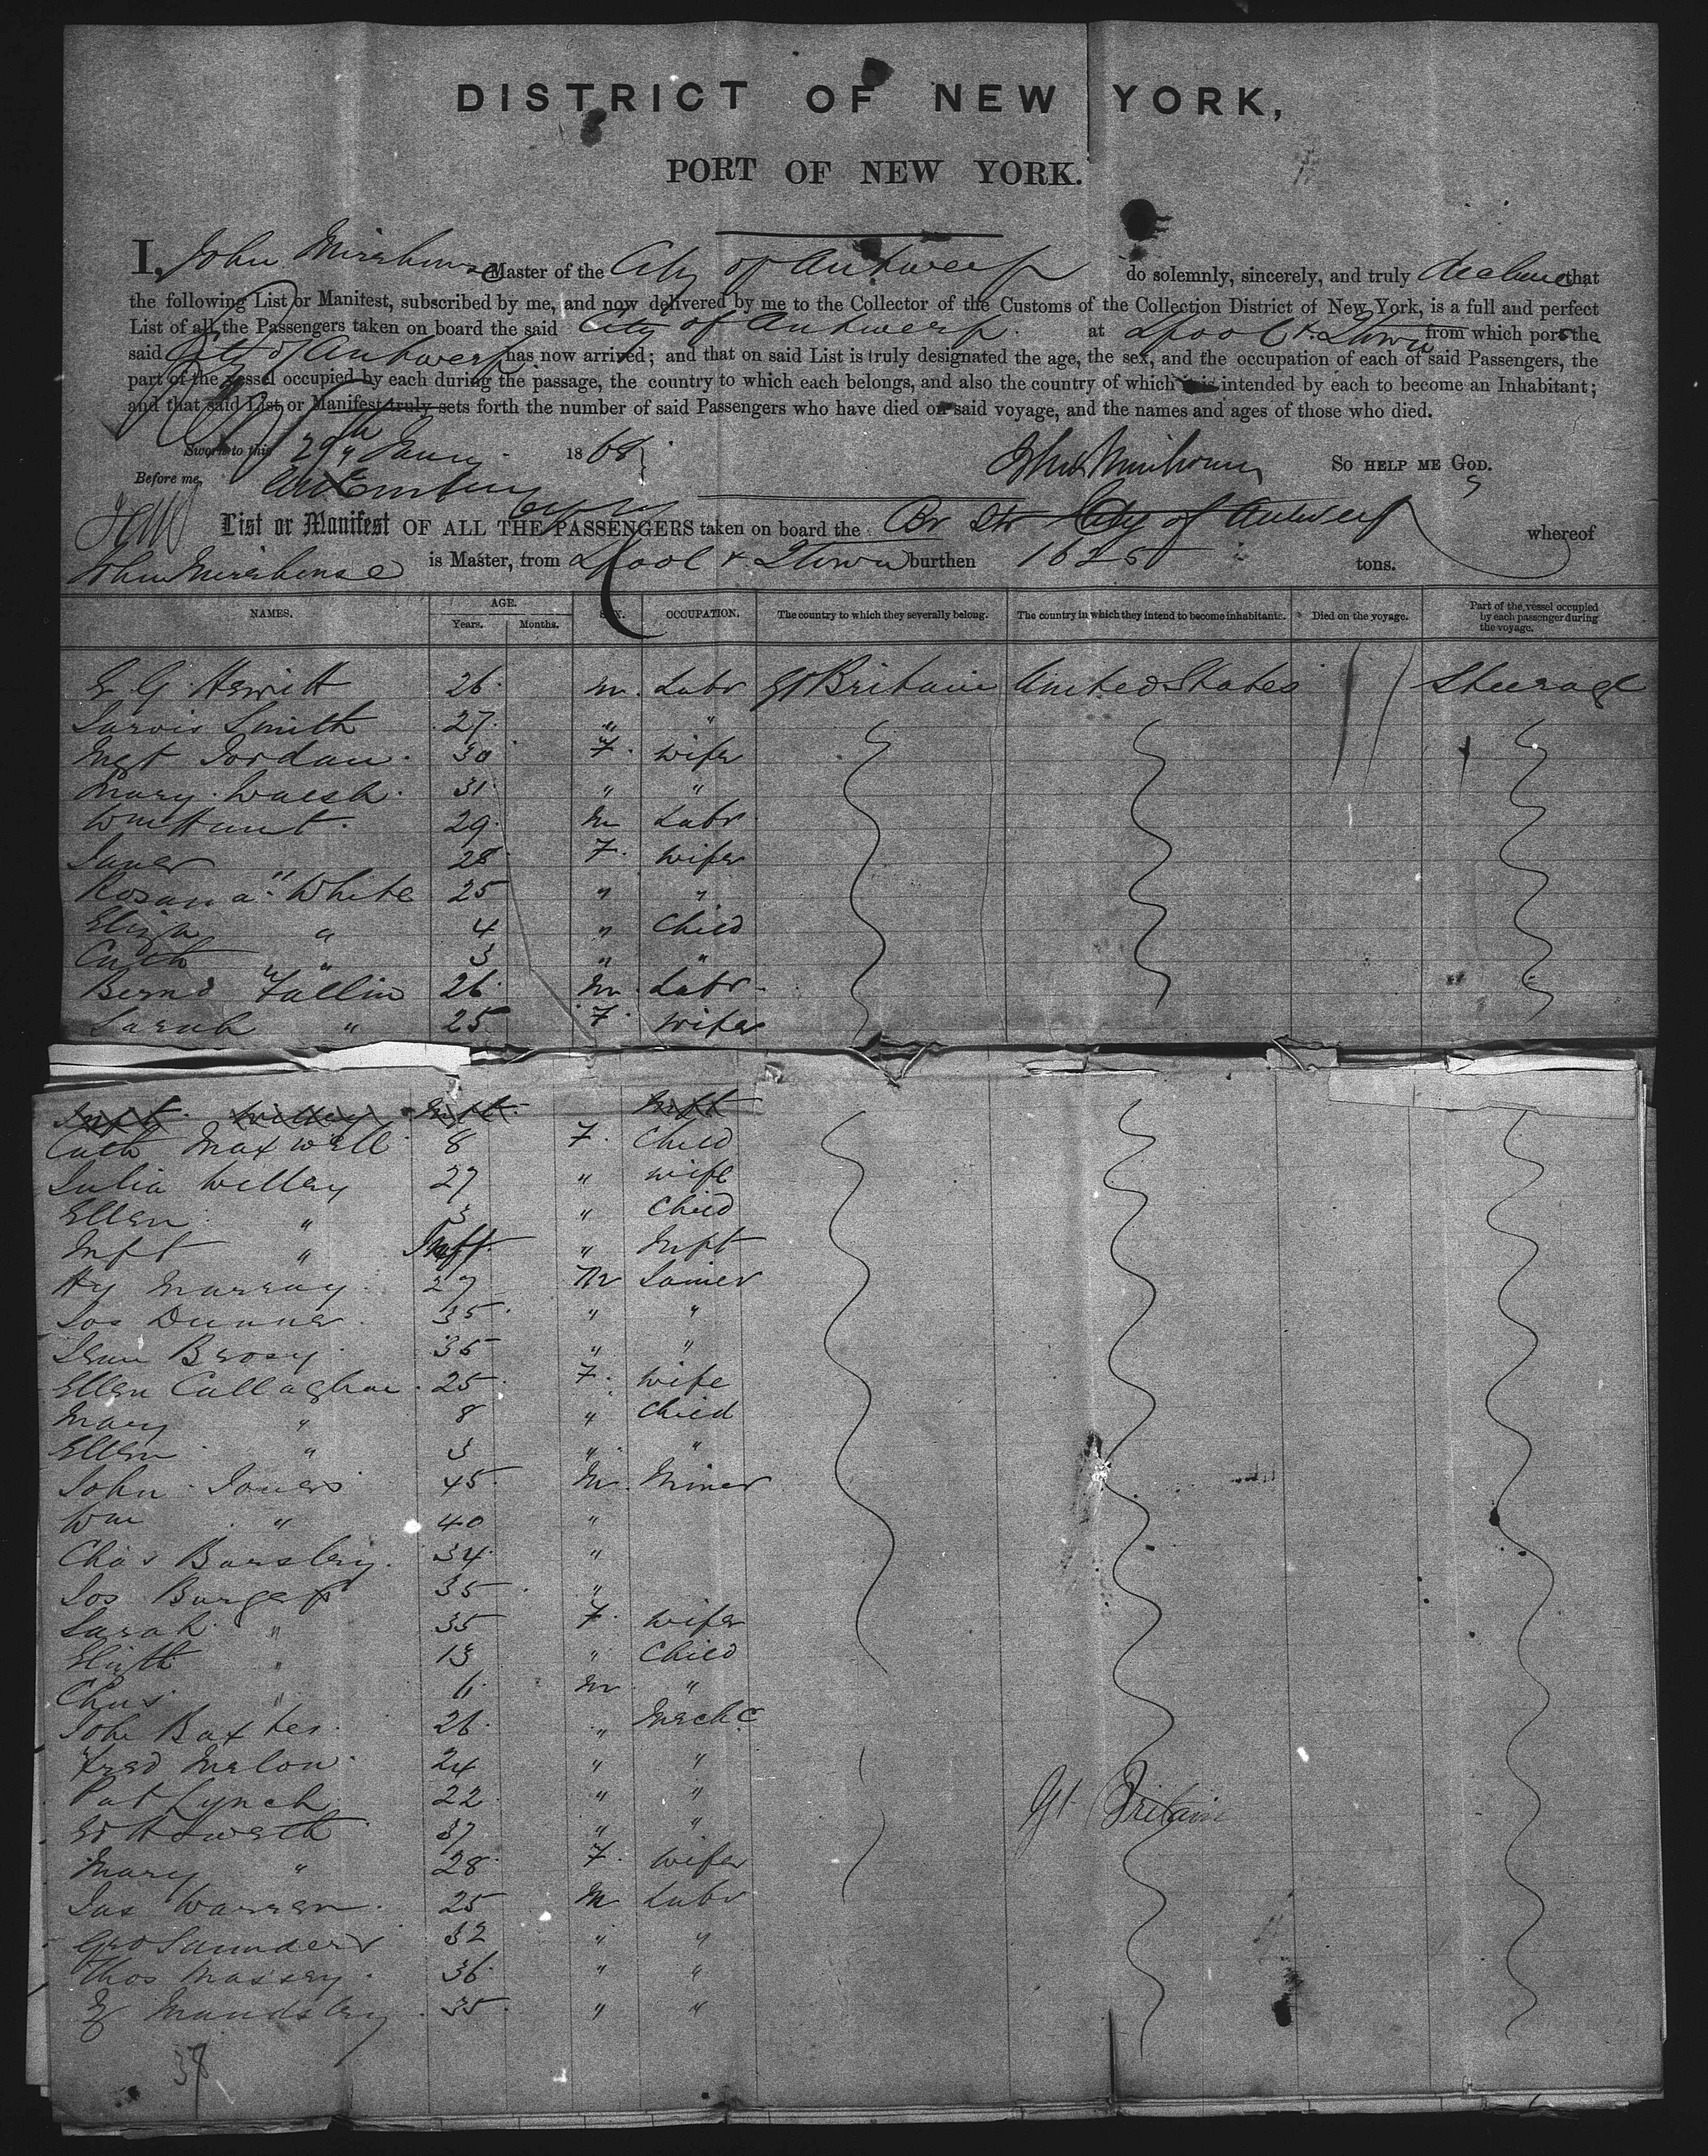 DISTRICT OF NEW YORK,
PORT OF NEW YORK.
I, John Mirehouse Master of the City of Antwerp do solemnly, sincerely, and truly declare that
the following List or Manifest, subscribed by me, and now delivered by me to the Collector of the Customs of the Collection District of New York, is a full and perfect
List of all the Passengers taken on board the said City of Antwerp at Lpool & Qtown from which ports the
said City of Antwerp has now arrived; and that on said List is truly designated the age, the sex, and the occupation of each of said Passengers, the
part of the vessel occupied by each during the passage, the country to which each belongs, and also the country of which it is intended by each to become an Inhabitant;
and that said List or Manifest truly sets forth the number of said Passengers who have died on said voyage, and the names and ages of those who died.
Sworn to this 29th Jany 1868 John Mirehouse SO HELP ME GOD.
Before me,
List or Manifest OF ALL THE PASSENGERS taken on board the Br Str City of Antwerp whereof
John Mirehouse is Master, from Lpool & Qtown burthen 1625 tons.
NAMES. AGE. Years. Months. SEX. OCCUPATION. The country to which they severally belong. The country in which they intend to become inhabitants. Died on the voyage. Part of the vessel occupied by each passenger during the voyage.
E G Hewitt 26 m. Labr Gt Britain United States Steerage
Jarvis Smith 27 " "
Mgt Jordan 30 F. wife
Mary Walsh 31 " "
Wm Hunt 29 m Labr
Jane " 28 F. wife
Rosana White 25 " "
Eliza " 4 " Child
Cath " 3 " "
Bernd Fallin 26 m. Labr
Sarah " 25 F. wife
Inft Willey Inft Inft
Cath Maxwell 8 F. Child
Julia Willey 27 " wife
Ellen " 3 " Child
Inft " Inft " Inft
Hy Murray 27 m Joiner
Jos Dunne 35 " "
35 " "
Ellen Callaghan 25 F. wife
Mary " 8 " Child
Ellen " 3 " "
John Jones 45 m. Miner
Wm " 40 "
Chas Barsley 34 "
Jos Burgess 35 "
Sarah " 35 F. wife
Elizth " 13 " Child
Chas " 6 m "
John Baxter 26 " Mechc
Fred Melon 24 " "
Pat Lynch 22 " " Gt Britain
Ed Howarth 37 " "
Mary " 28 F. wife
Jas Warren 25 m Labr
Geo Saunders 32 " "
Thos Massey 36 " "
Maudsley 35 " "
38